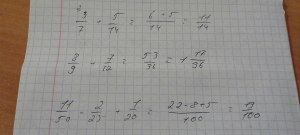 2 3/7 + 5/14 = (6+5)/14 = 11/14
8/9 - 7/12 = 53/36 = 1 17/36
11/50 - 2/25 + 1/20 = (22-8+5)/100 = 19/100